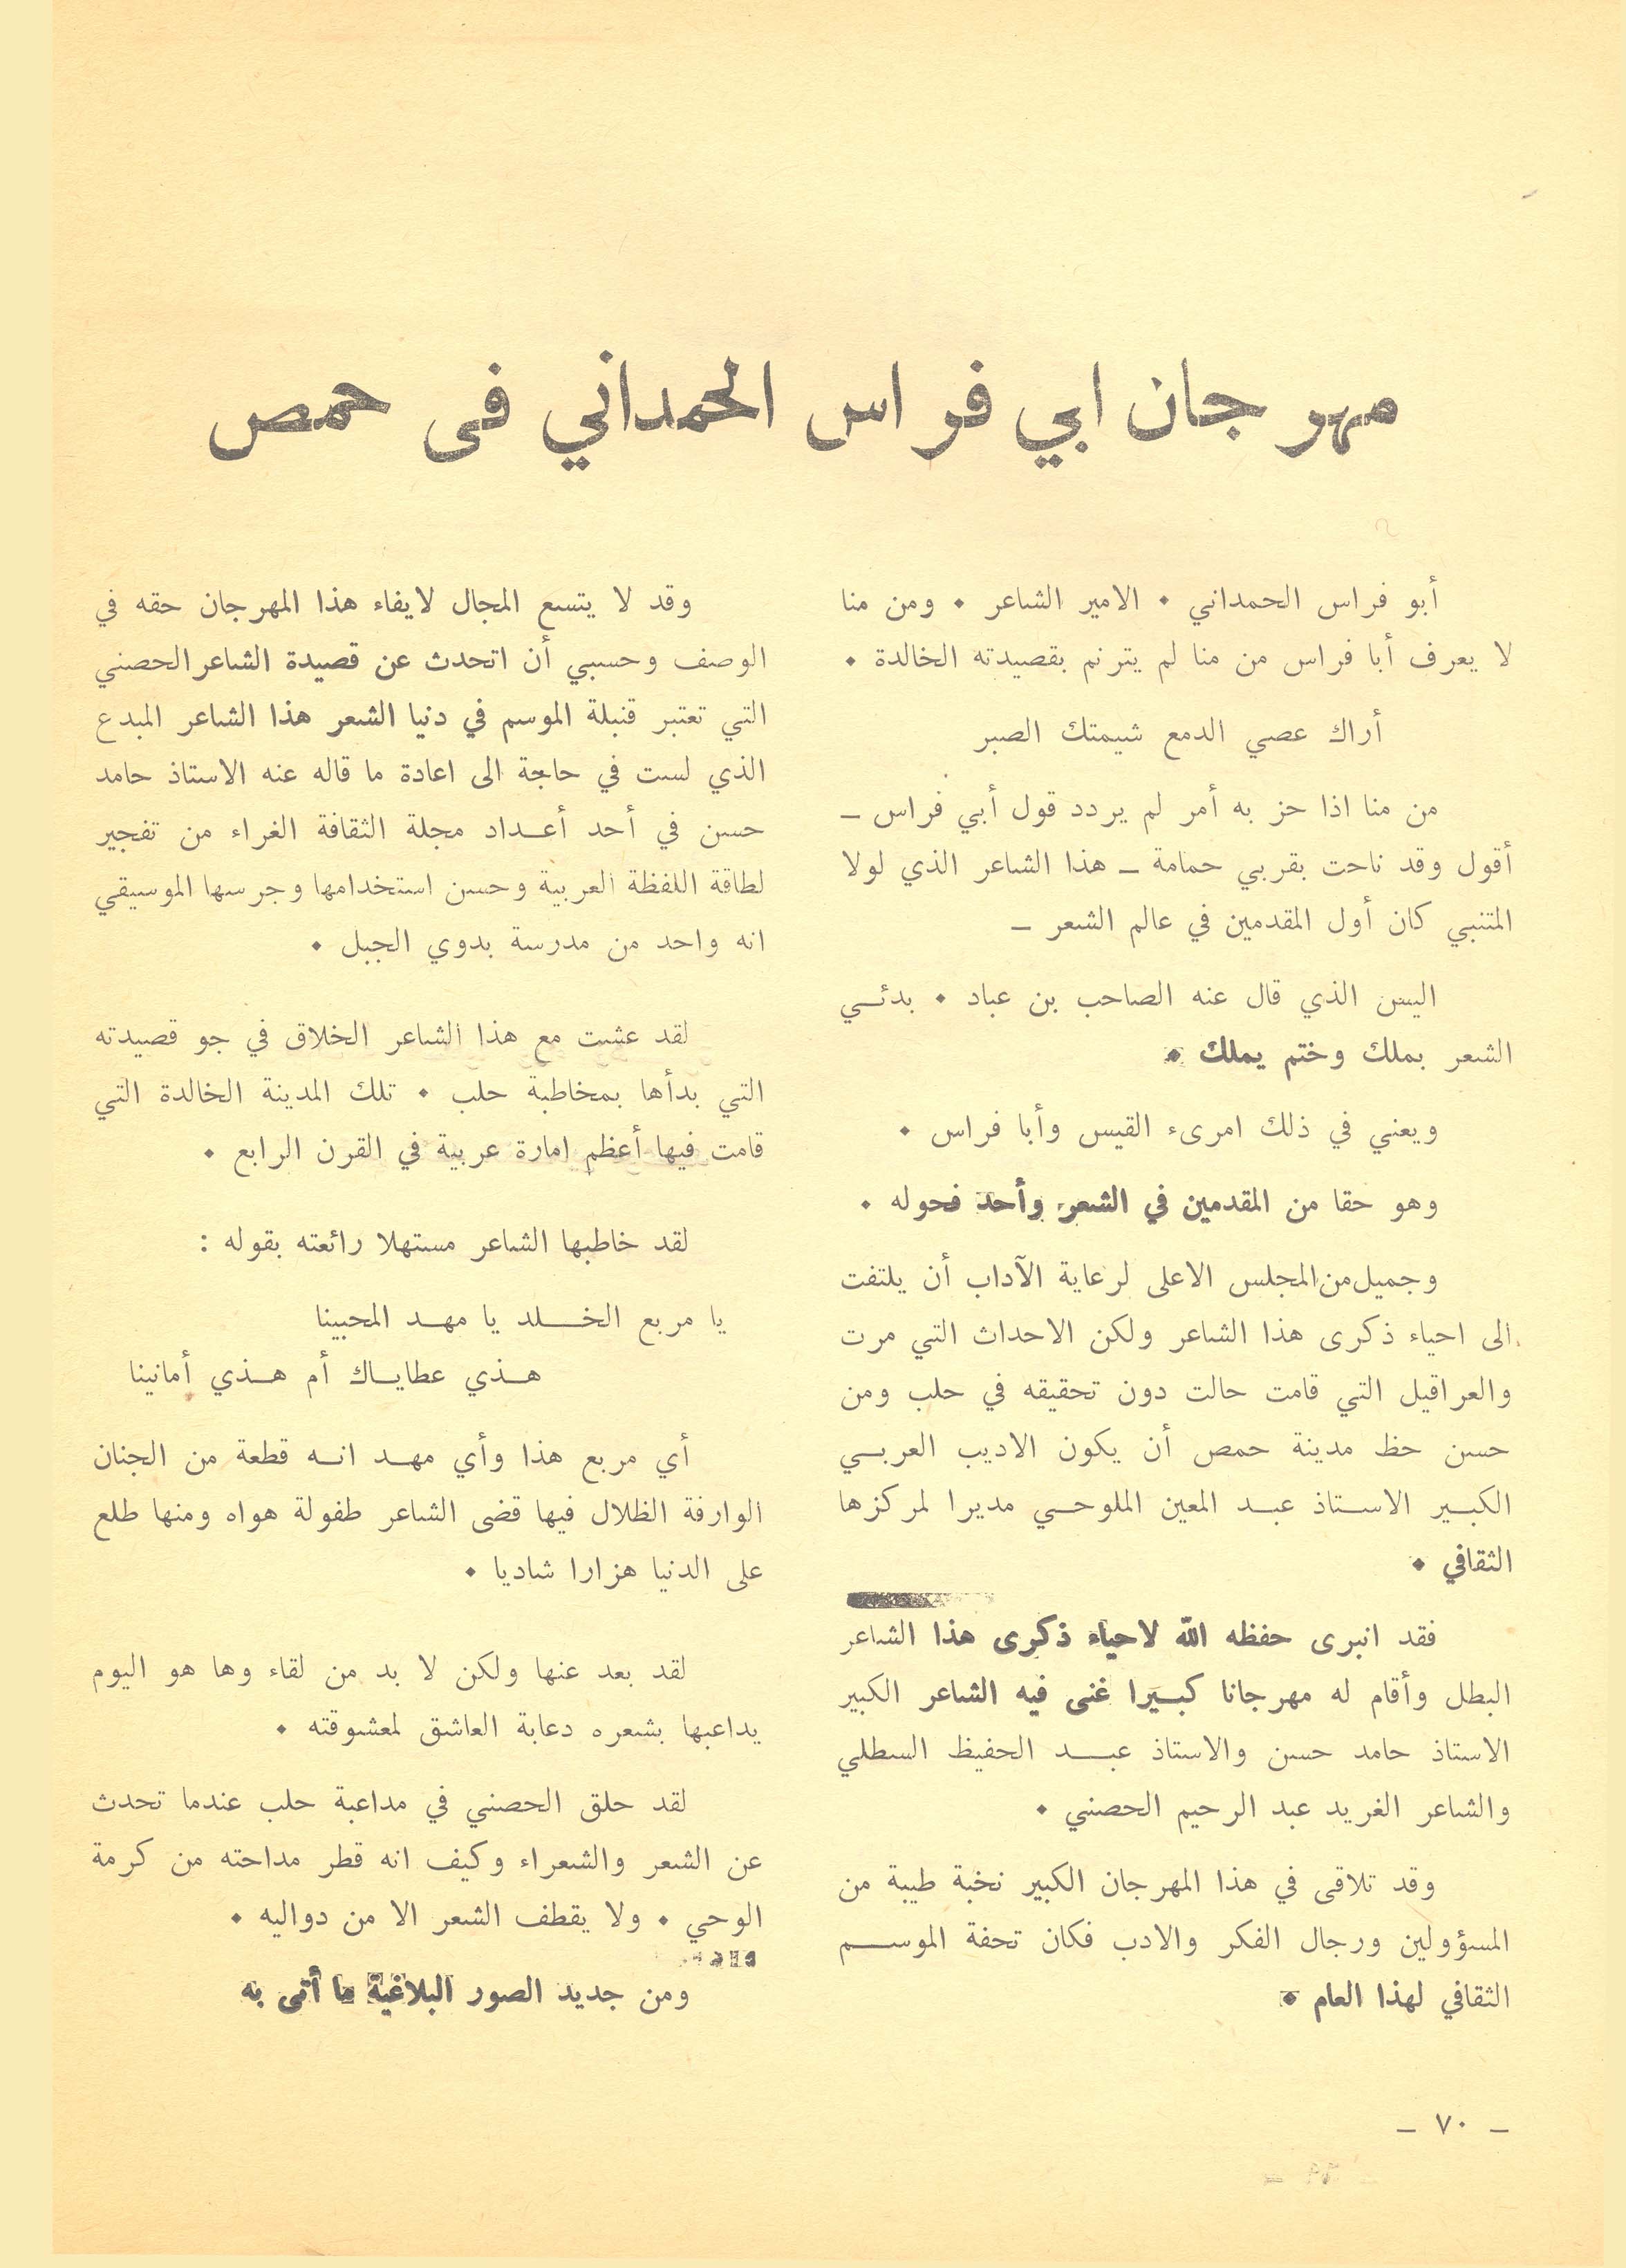 مهرجان ابي فراس الحمداني فى حمص
أبو فراس الحمداني ٠ الامير الشاعر ٠ ومن منا
لا يعرف أبا فراس من منا لم يترنم بقصيدته الخالدة ٠
أراك عصي الدمع شيمتك الصبر
من منا اذا حز به أمر لم يردد قول أبي فراس ــ
أقول وقد ناحت بقربي حمامة ــ هذا الشاعر الذي لولا
المتنبي كان أول المقدمين في عالم الشعر ــ
اليس الذي قال عنه الصاحب بن عباد ٠ بدئـي
الشعر بملك وختم يملك ٠
ويعني في ذلك امرىء القيس وأبا فراس ٠
وهو حقا من المقدمين في الشعر وأحد فحوله ٠
وجميل من المجلس الاعلى لرعاية الآداب أن يلتفت
الى احياء ذكرى هذا الشاعر ولكن الاحداث التي مرت
والعراقيل التي قامت حالت دون تحقيقه في حلب ومن
حسن حظ مدينة حمص أن يكون الاديب العربـي
الكبـير الاسـتاذ عبـد المعين الملوحـي مديرا لمركزها
الثقافي ٠
فقد انبرى حفظه الله لاحياء ذكرى هذا الشاعر
البطل وأقام له مهرجانا كبـيرا غنى فيه الشاعر الكبير
الاستاذ حامد حسن والاستاذ عبـد الحفيظ السطلي
والشاعر الغريد عبد الرحيم الحصني ٠
وقد تلاقى في هذا المهرجان الكبير نخبة طيبة من
المسؤولين ورجال الفكر والادب فكان تحفة الموسـم
الثقافي لهذا العام ٠
وقد لا يتسع المجال لايفاء هذا المهرجان حقه في
الوصف وحسبي أن اتحدث عن قصيدة الشاعر الحصني
التي تعتبر قنبلة الموسم في دنيا الشعر هذا الشاعر المبدع
الذي لست في حاجة الى اعادة ما قاله عنه الاستاذ حامد
حسن في أحد أعـداد مجلة الثقافة الغراء من تفجير
لطاقة اللفظة العربية وحسن استخدامها وجرسها الموسيقي
انه واحد من مدرسة بدوي الجبل ٠
لقد عشت مع هذا الشاعر الخلاق في جو قصيدته
التي بدأها بمخاطبة حلب ٠ تلك المدينة الخالدة التي
قامت فيها أعظم امارة عربية في القرن الرابع ٠
لقد خاطبها الشاعر مستهلا رائعته بقوله :
يا مربع الخـلد يا مهـد المحبينا
هـذي عطايـاك أم هـذي أمانينا
أي مربع هذا وأي مهـد انـه قطعة من الجنان
الوارفة الظلال فيها قضى الشاعر طفولة هواه ومنها طلع
على الدنيا هزارا شاديا ٠
لقد بعد عنها ولكن لا بد من لقاء وها هو اليوم
يداعبها بشعره دعابة العاشق لمعشوقته ٠
لقد حلق الحصني في مداعبة حلب عندما تحدث
عن الشعر والشعراء وكيف انه قطر مداحته من كرمة
الوحي ٠ ولا يقطف الشعر الا من دواليه ٠
ومن جديد الصور البلاغية ما أتى به
ــ ٧٠ ــ